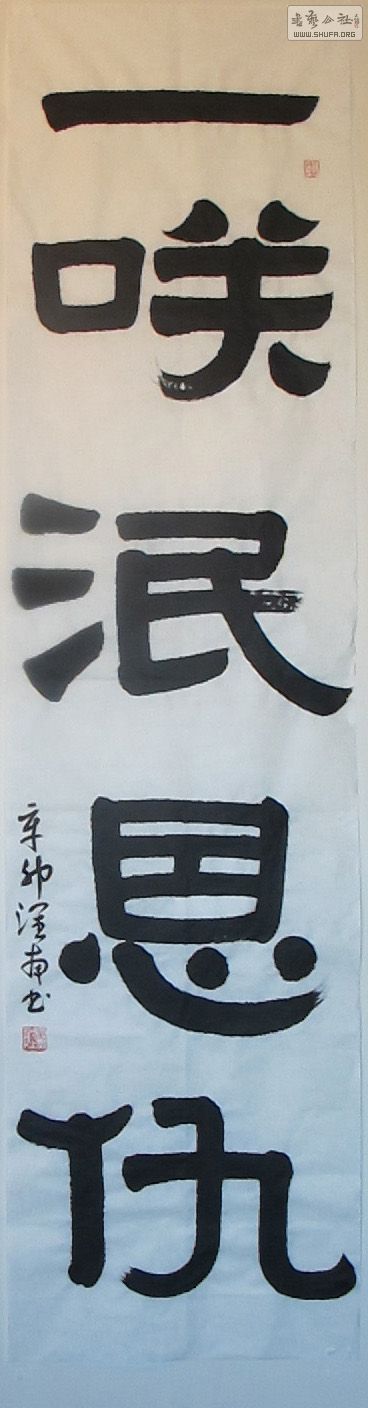 一咲泯恩仇
辛卯泽南书
书艺公社
WWW.SHUFA.ORG